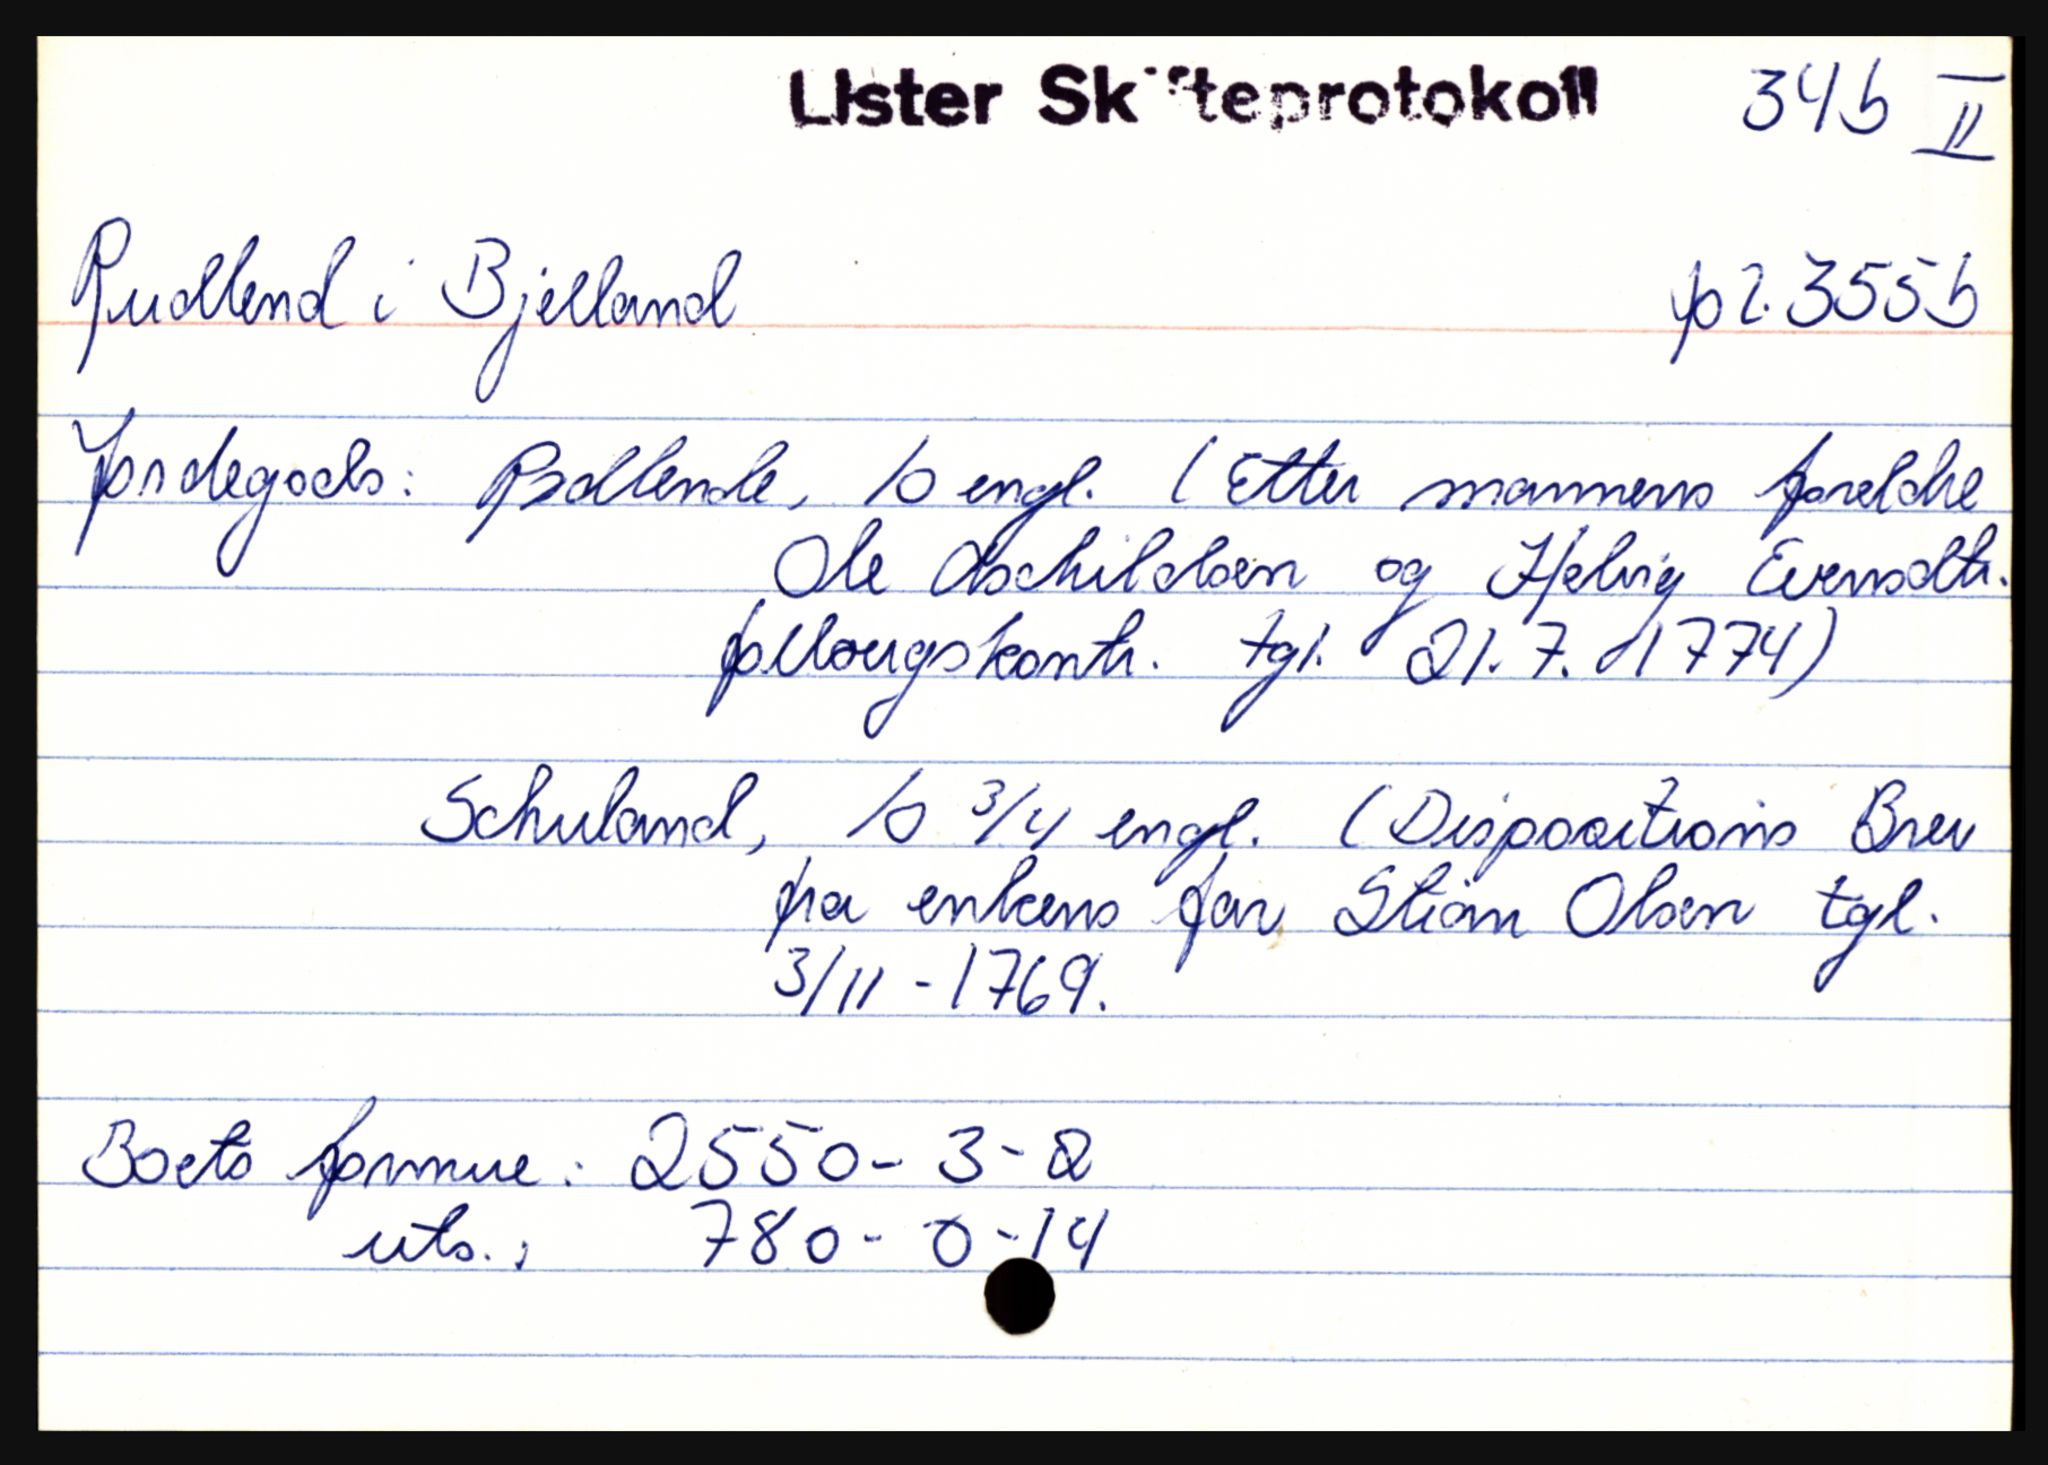 Lister Skifteprotokoll 34b II
Rudlend i Bjelland fol. 355b
Jordegods: Rødlende, 1/2 engl. (Etter mannens foreldre
Ole Aschildsen og Helvig Evensdtr.
follougskontr. tgl. 21.7.1774)
Schuland, 1/2 3/4 engl. (Dispositions Brev
fra enkens far Stian Olsen tgl.
3/11-1769.
Boets formue: 2550-3-2
uts.: 780-0-14